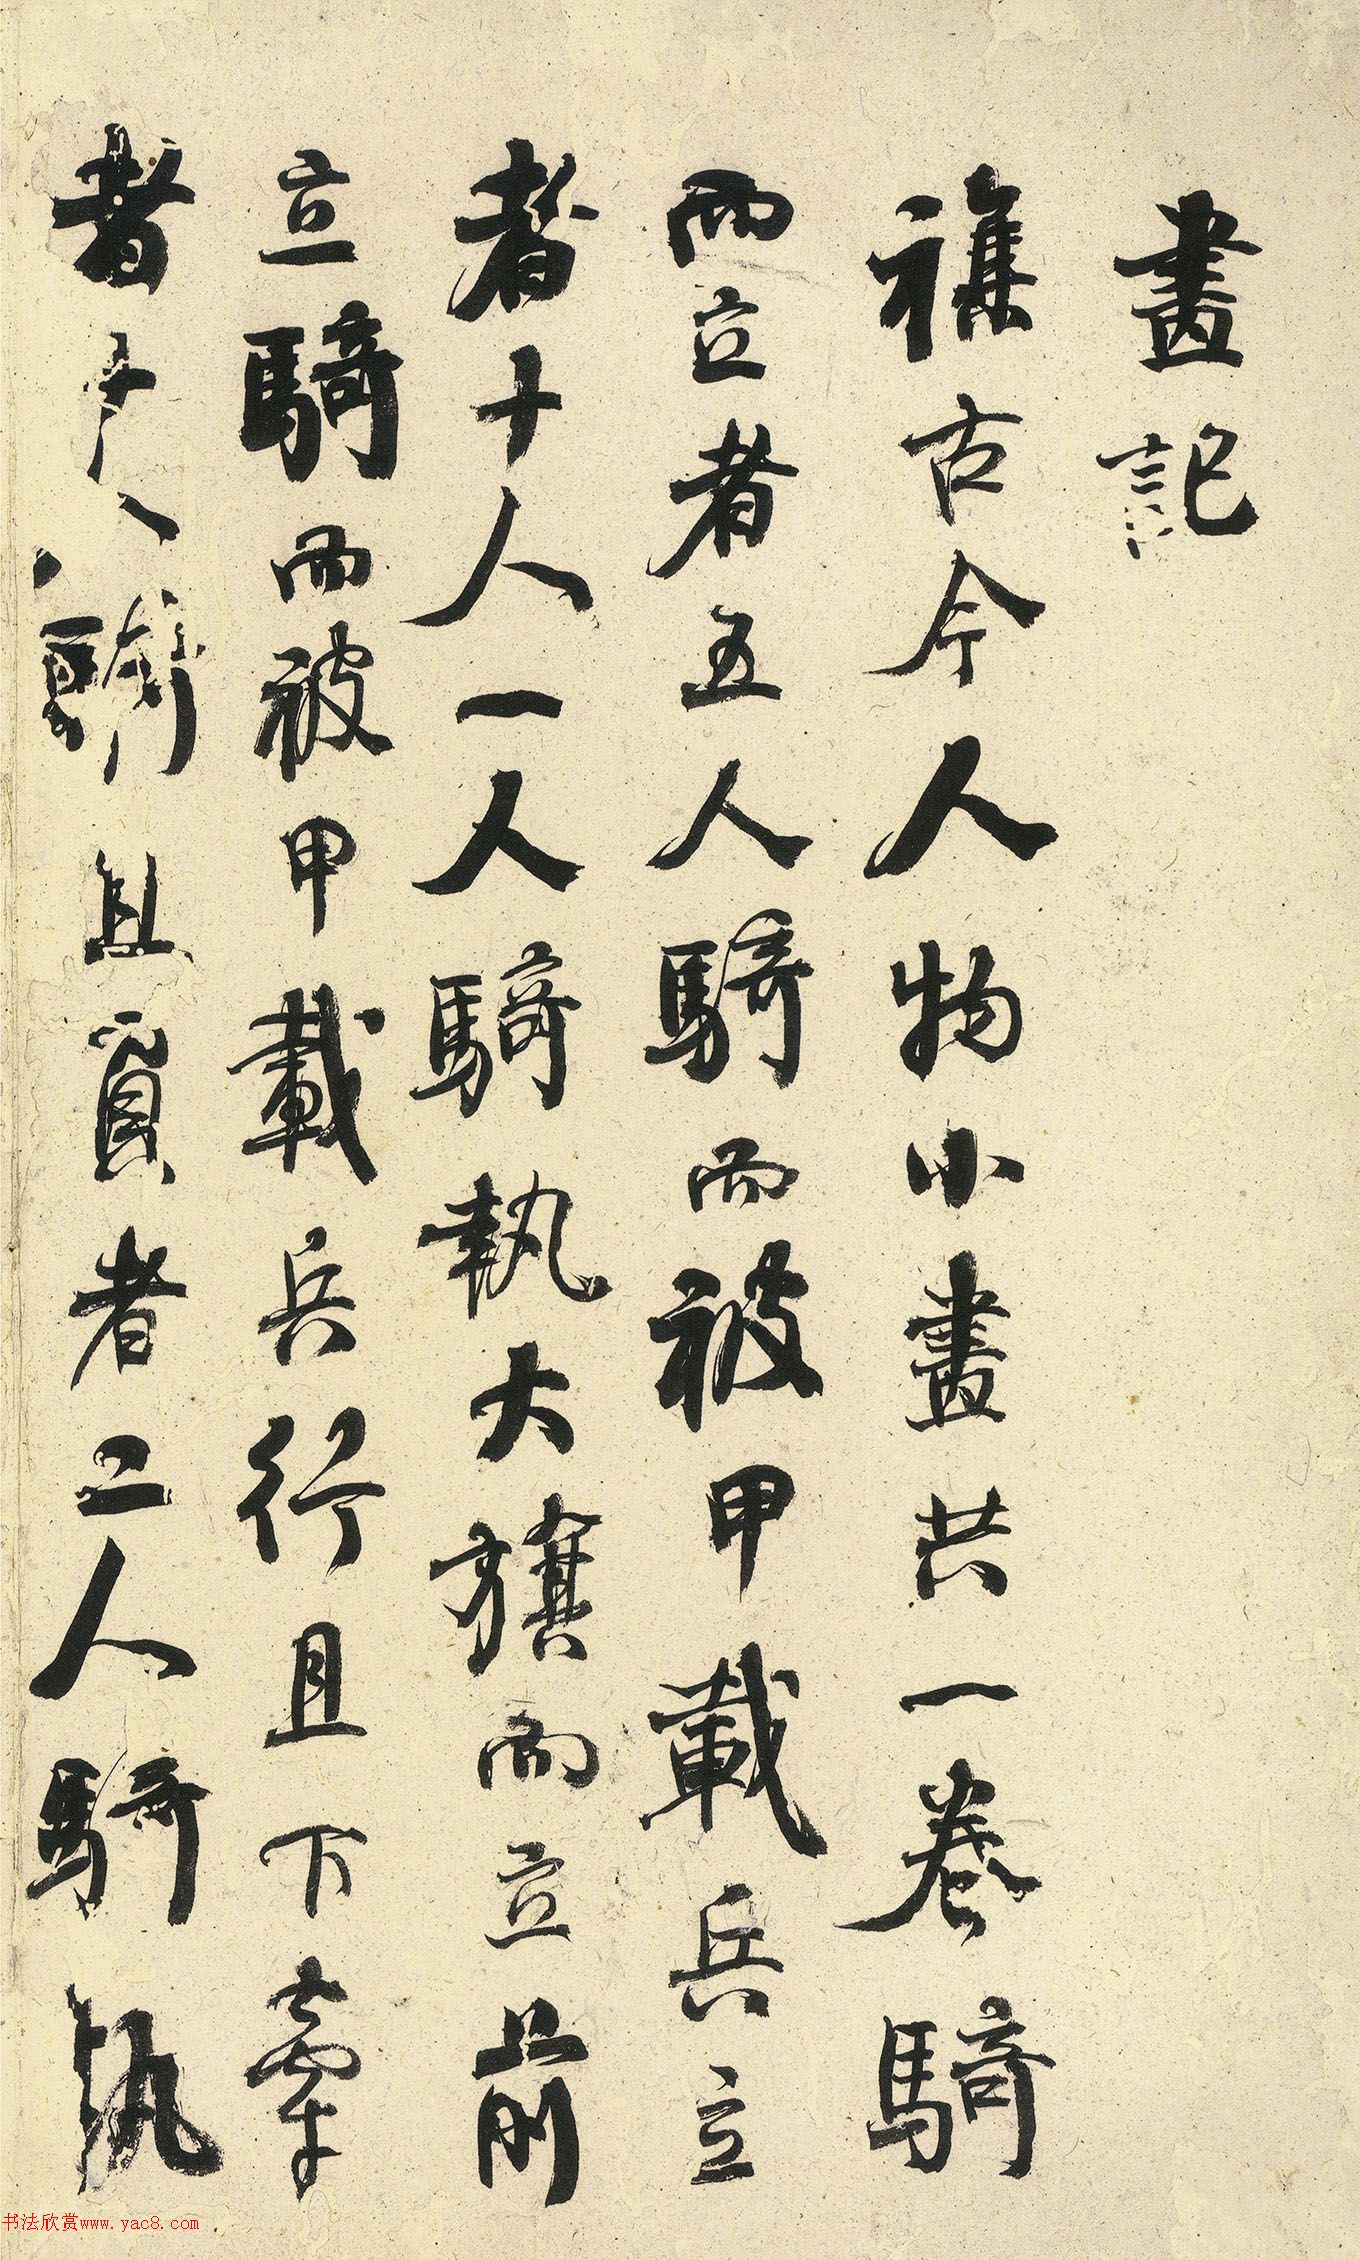 畫記
襍古今人物小畫共一卷騎
而立者五人騎而被甲載兵立
者十人一人騎執大旗而立前
立騎而被甲載兵行且下牽
者十人騎且負者二人騎執
书法欣赏www.yac8.com